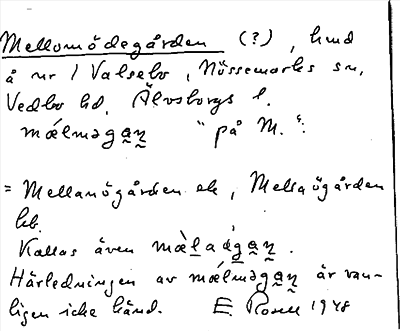 Mellomödegården (?), hmd
å nr 1 Valsebo, Nössemarks sn,
Vedbo hd, Älvsborgs l.
mǽlməga̰n̰ "på M.":
= Mellanögården el, Mellaögården
hb.
Kallas även mæ̀laága̰n̰.
Härledningen av mǽlməga̰n̰ är van-
ligen icke känd. E. Rosell 1948